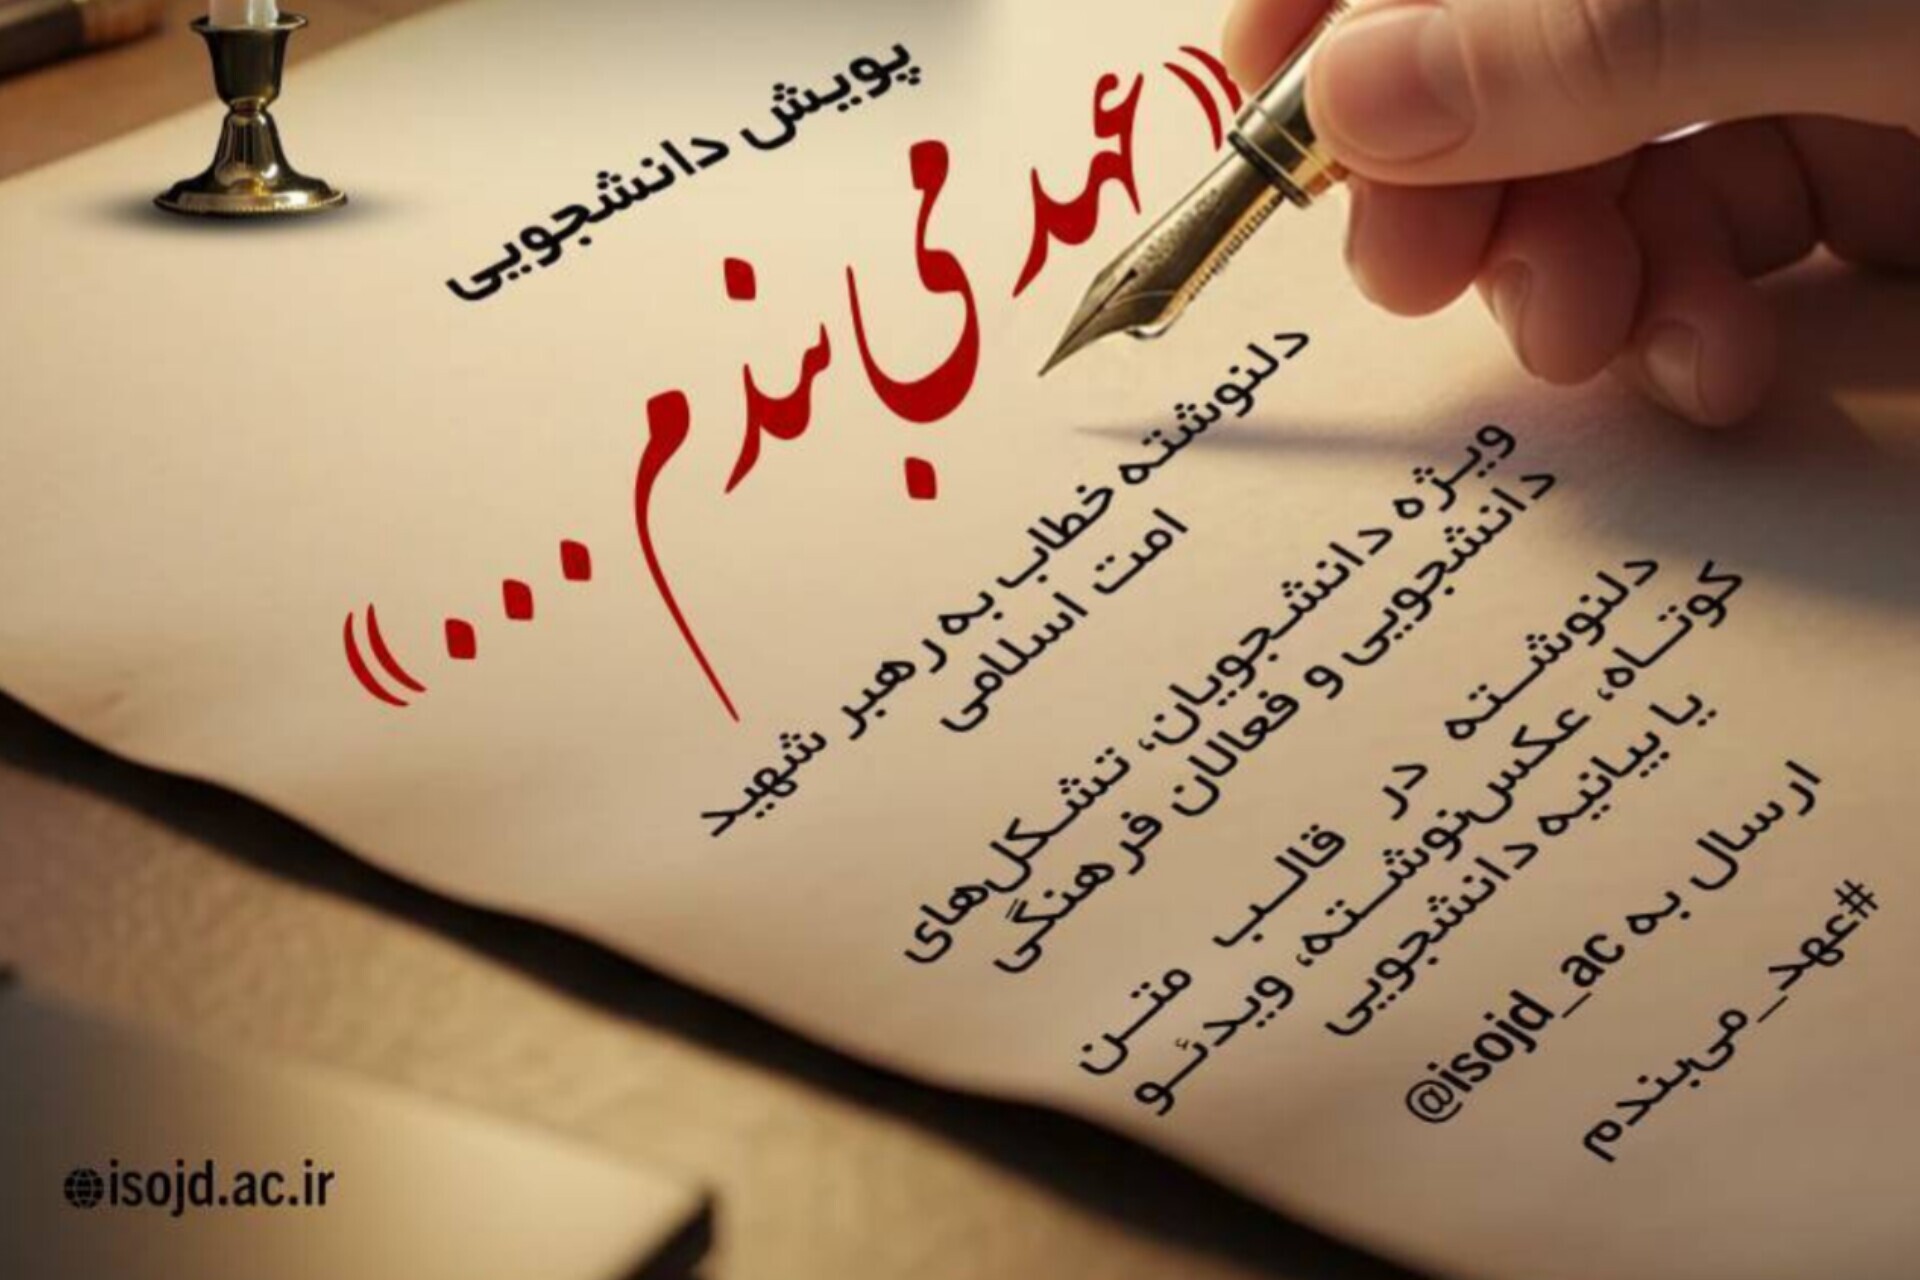 پویش دانشجویی
«عهد می‌بندم...»
دلنوشته خطاب به رهبر شهید
امت اسلامی
ویژه دانشجویان، تشکل‌های
دانشجویی و فعالان فرهنگی
دلنوشته در قالب متن
کوتاه، عکس‌نوشته، ویدئو
یا بیانیه دانشجویی
ارسال به @isojd_ac
#عهد_می‌بندم
isojd.ac.ir